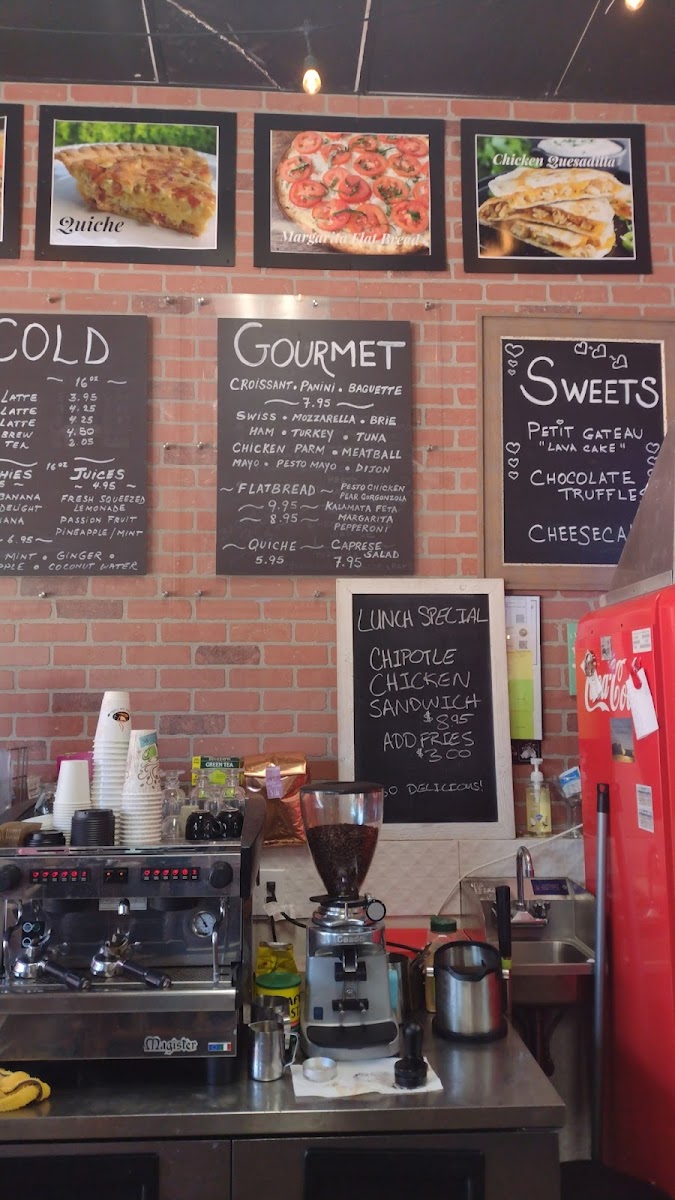 Quiche
Margarita Flat Bread
Chicken Quesadilla
COLD
16 oz
LATTE 3.95
LATTE 4.25
LATTE 4.25
BREW 4.50
TEA
16 oz JUICES
4.95
BANANA
DELIGHT
FRESH SQUEEZED
LEMONADE
PASSION FRUIT
PINEAPPLE/MINT
6.95
MINT • GINGER •
COCONUT WATER
GOURMET
CROISSANT • PANINI • BAGUETTE
7.95
SWISS • MOZZARELLA • BRIE
HAM • TURKEY • TUNA
CHICKEN PARM • MEATBALL
MAYO • PESTO MAYO • DIJON
FLATBREAD
9.95
8.95
PESTO CHICKEN
PEAR GORGONZOLA
KALAMATA FETA
MARGARITA
PEPPERONI
QUICHE
5.95
CAPRESE
SALAD
7.95
SWEETS
PETIT GATEAU
"LAVA CAKE"
CHOCOLATE
TRUFFLES
CHEESECA
LUNCH SPECIAL
CHIPOTLE
CHICKEN
SANDWICH
$8.95
ADD FRIES
$3.00
SO DELICIOUS!
GREEN TEA
Coca-Co
Magister